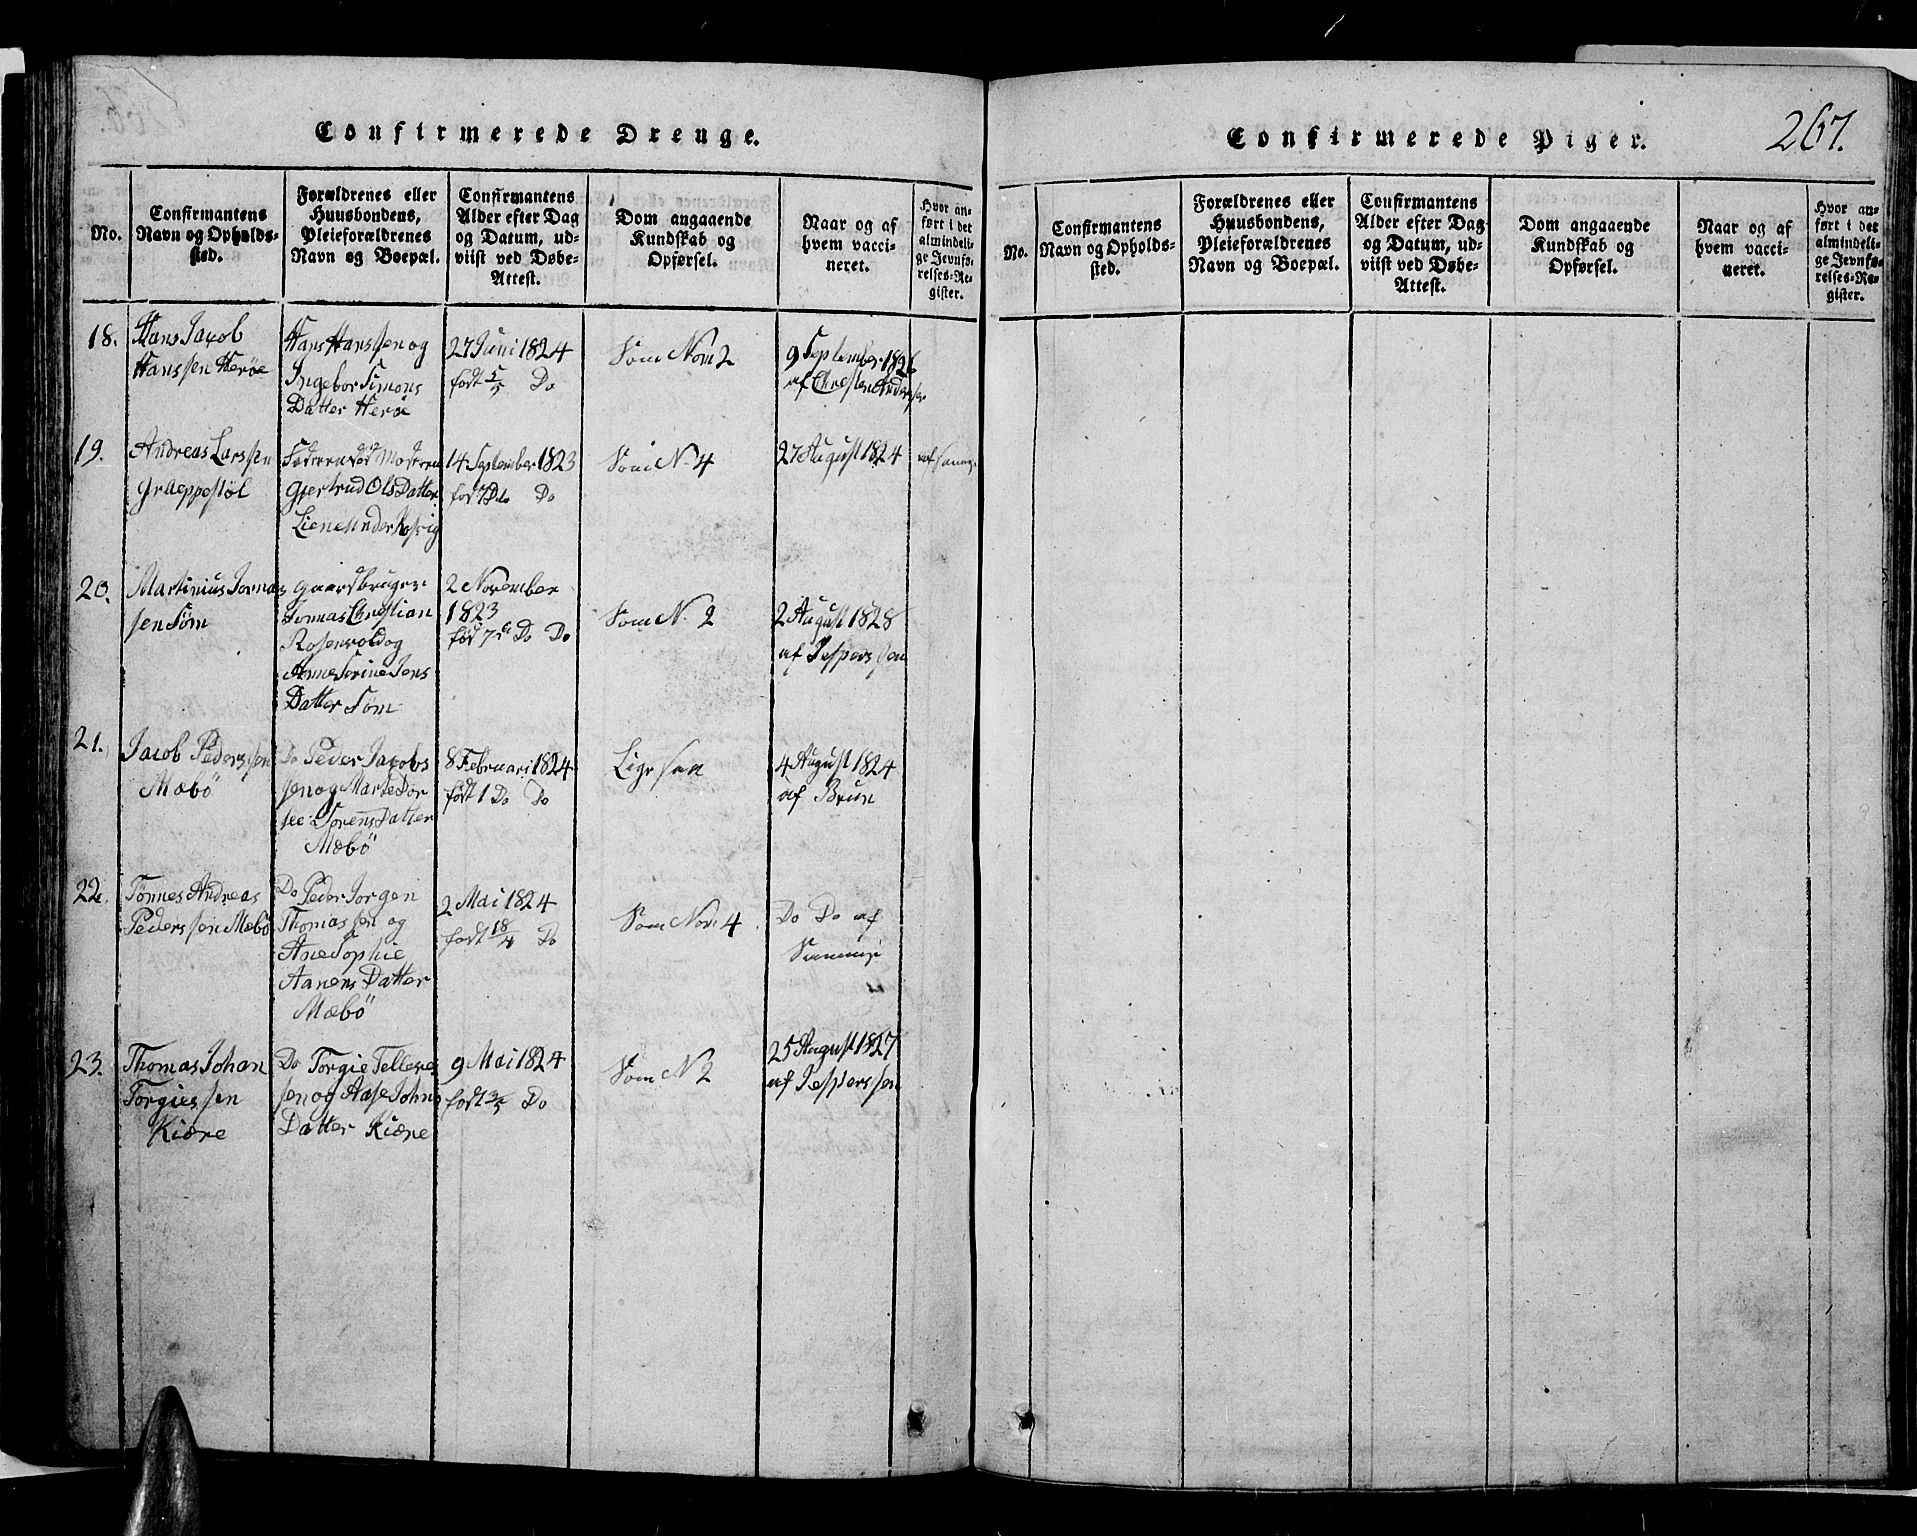 Confirmerede Drenge.
No.
Confirmantens
Navn og Opholds-
sted.
Forældrenes eller
Huusbondens,
Pleieforældrenes
Navn og Boepæl.
Confirmantens
Alder efter Dag
og Datum, ud-
viist ved Døbe-
Attest.
Dom angaaende
Kundskab og
Opførsel.
Naar og af
hvem vacci-
neret.
Hvor an-
ført i det
almindeli-
ge Jevnfø-
relses-Re-
gister.
18.
Hans Jacob
Hanssen Herøe
Hans Hanssen og
Ingebor Simons
Datter Herøe
27 Juni 1824
født 5/5 Do
Som Nom 2
9 September 1826
af Chresten Anderssen
19.
Andreas Larssen
Græppestøl
Faderen død Moderen
Gjertrud Ols Datter
Liene under
14 September 1823
fød Do Do
Som N. 4
27 August 1824
af
20.
Martinius Tornas
sen Søm
Gaardbruger
Tornas Chrestian
Rosenvold og
Anne Torine Jens
Datter Søm
2 November
1823
fød 7de Do Do
Som N. 2
2 August 1828
af Jesperssen
21.
Jacob Pederssen
Mæbø
Do Peder Jacobs
sen og Marte Dor
Sørens Datter
Mæbø
8 Februari 1824
født 1 Do Do
Ligesaa
4 August 1824
af Brun
22.
Tønnes Andreas
Pederssen Mæbø
Do Peder Jørgen
Thomassen og
Ane Sophie
Aanens Datter
Mæbø
2 Mai 1824
født 18/4 Do
Som Nom 4
Do Do af
23.
Thomas Johan
Torgiessen
Kiære
Do Torgie Tellevs
sen og Aase Johns
Datter Kiære
9 Mai 1824
født 3/5 Do
Som N 2
25 August 1827
af Jesperssen
Confirmerede Piger.
267.
No.
Confirmantens
Navn og Opholds-
sted.
Forældrenes eller
Huusbondens,
Pleieforældrenes
Navn og Boepæl.
Confirmantens
Alder efter Dag
og Datum, ud-
viist ved Døbe-
Attest.
Dom angaaende
Kundskab og
Opførsel.
Naar og af
hvem vacci-
neret.
Hvor an-
ført i det
almindeli-
ge Jevnfø-
relses-Re-
gister.